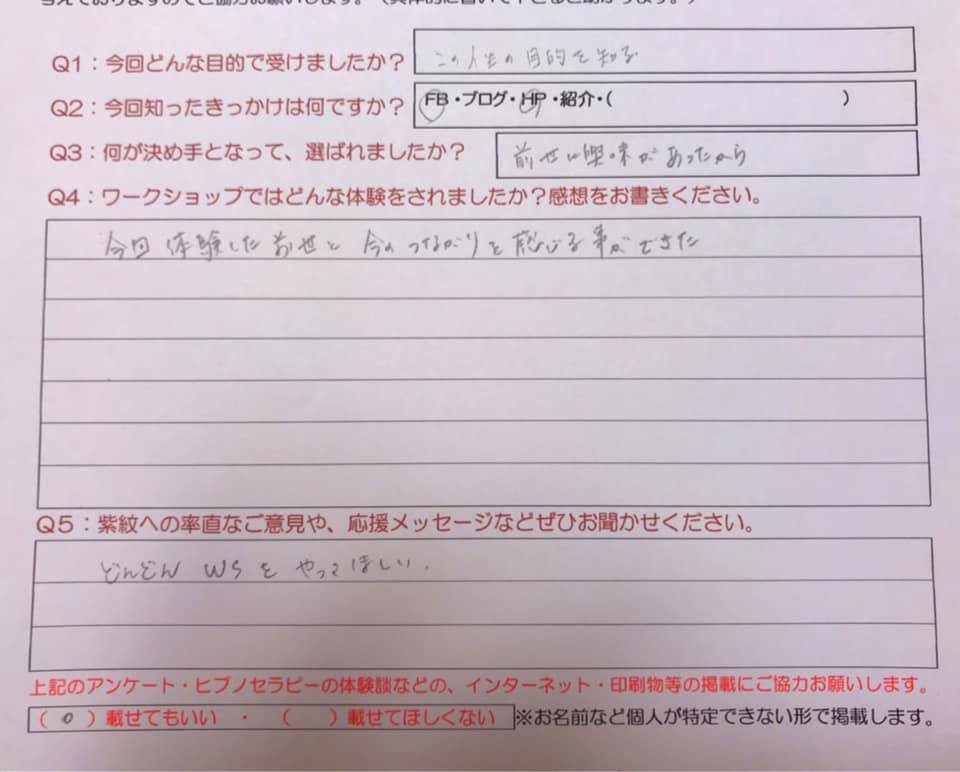 与えておりますのでご協力お願いします。（具体的に書いて下さると助かります。）
Q1：今回どんな目的で受けましたか？ この人生の目的を知る
Q2：今回知ったきっかけは何ですか？ FB・ブログ・HP・紹介・（　　　）
Q3：何が決め手となって、選ばれましたか？ 前世に興味があったから
Q4：ワークショップではどんな体験をされましたか？感想をお書きください。
今回 体験した前世と 今のつながりを感じる事ができた
Q5：紫紋への率直なご意見や、応援メッセージなどぜひお聞かせください。
どんどん WSを やってほしい.
上記のアンケート・ヒプノセラピーの体験談などの、インターネット・印刷物等の掲載にご協力お願いします。
（ o ）載せてもいい ・ （　　）載せてほしくない ※お名前など個人が特定できない形で掲載します。